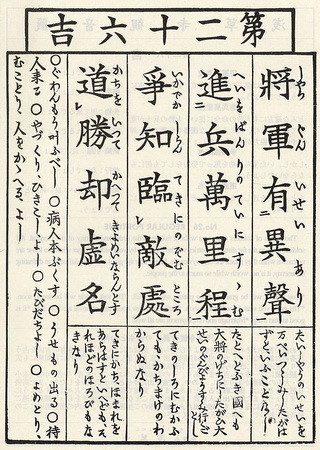 第二十六吉
將軍有二異聲一
しやうぐんいせいあり
たいしやうのいせいを
万ぺいつゝしみしたがは
ずと、いふことなし
進二兵萬里程一
へいをばんりのていにすゝむ
たとへとふき國へも
大將のげぢにしたがひ大
せいのぐんびやうすゝみ行ごとし
爭知臨レ敵處
いかでかしらんてきにのぞむところ
てきのしろにむかふ
ても、かちまけのわ
からぬなり
道レ勝却虚名
かちをいつてかへつてきよめいならんとす
てきにかち、ほまれを
あらはすといへども、そ
れほどのほろびもな
きなり
○ぐわんもう叶ふべし ○病人本ぶくす ○うせもの出る ○待
人来る ○やづくり、ひきこしよし ○たびだちよし ○よめとり、
むことり、人をかゝへる、よし